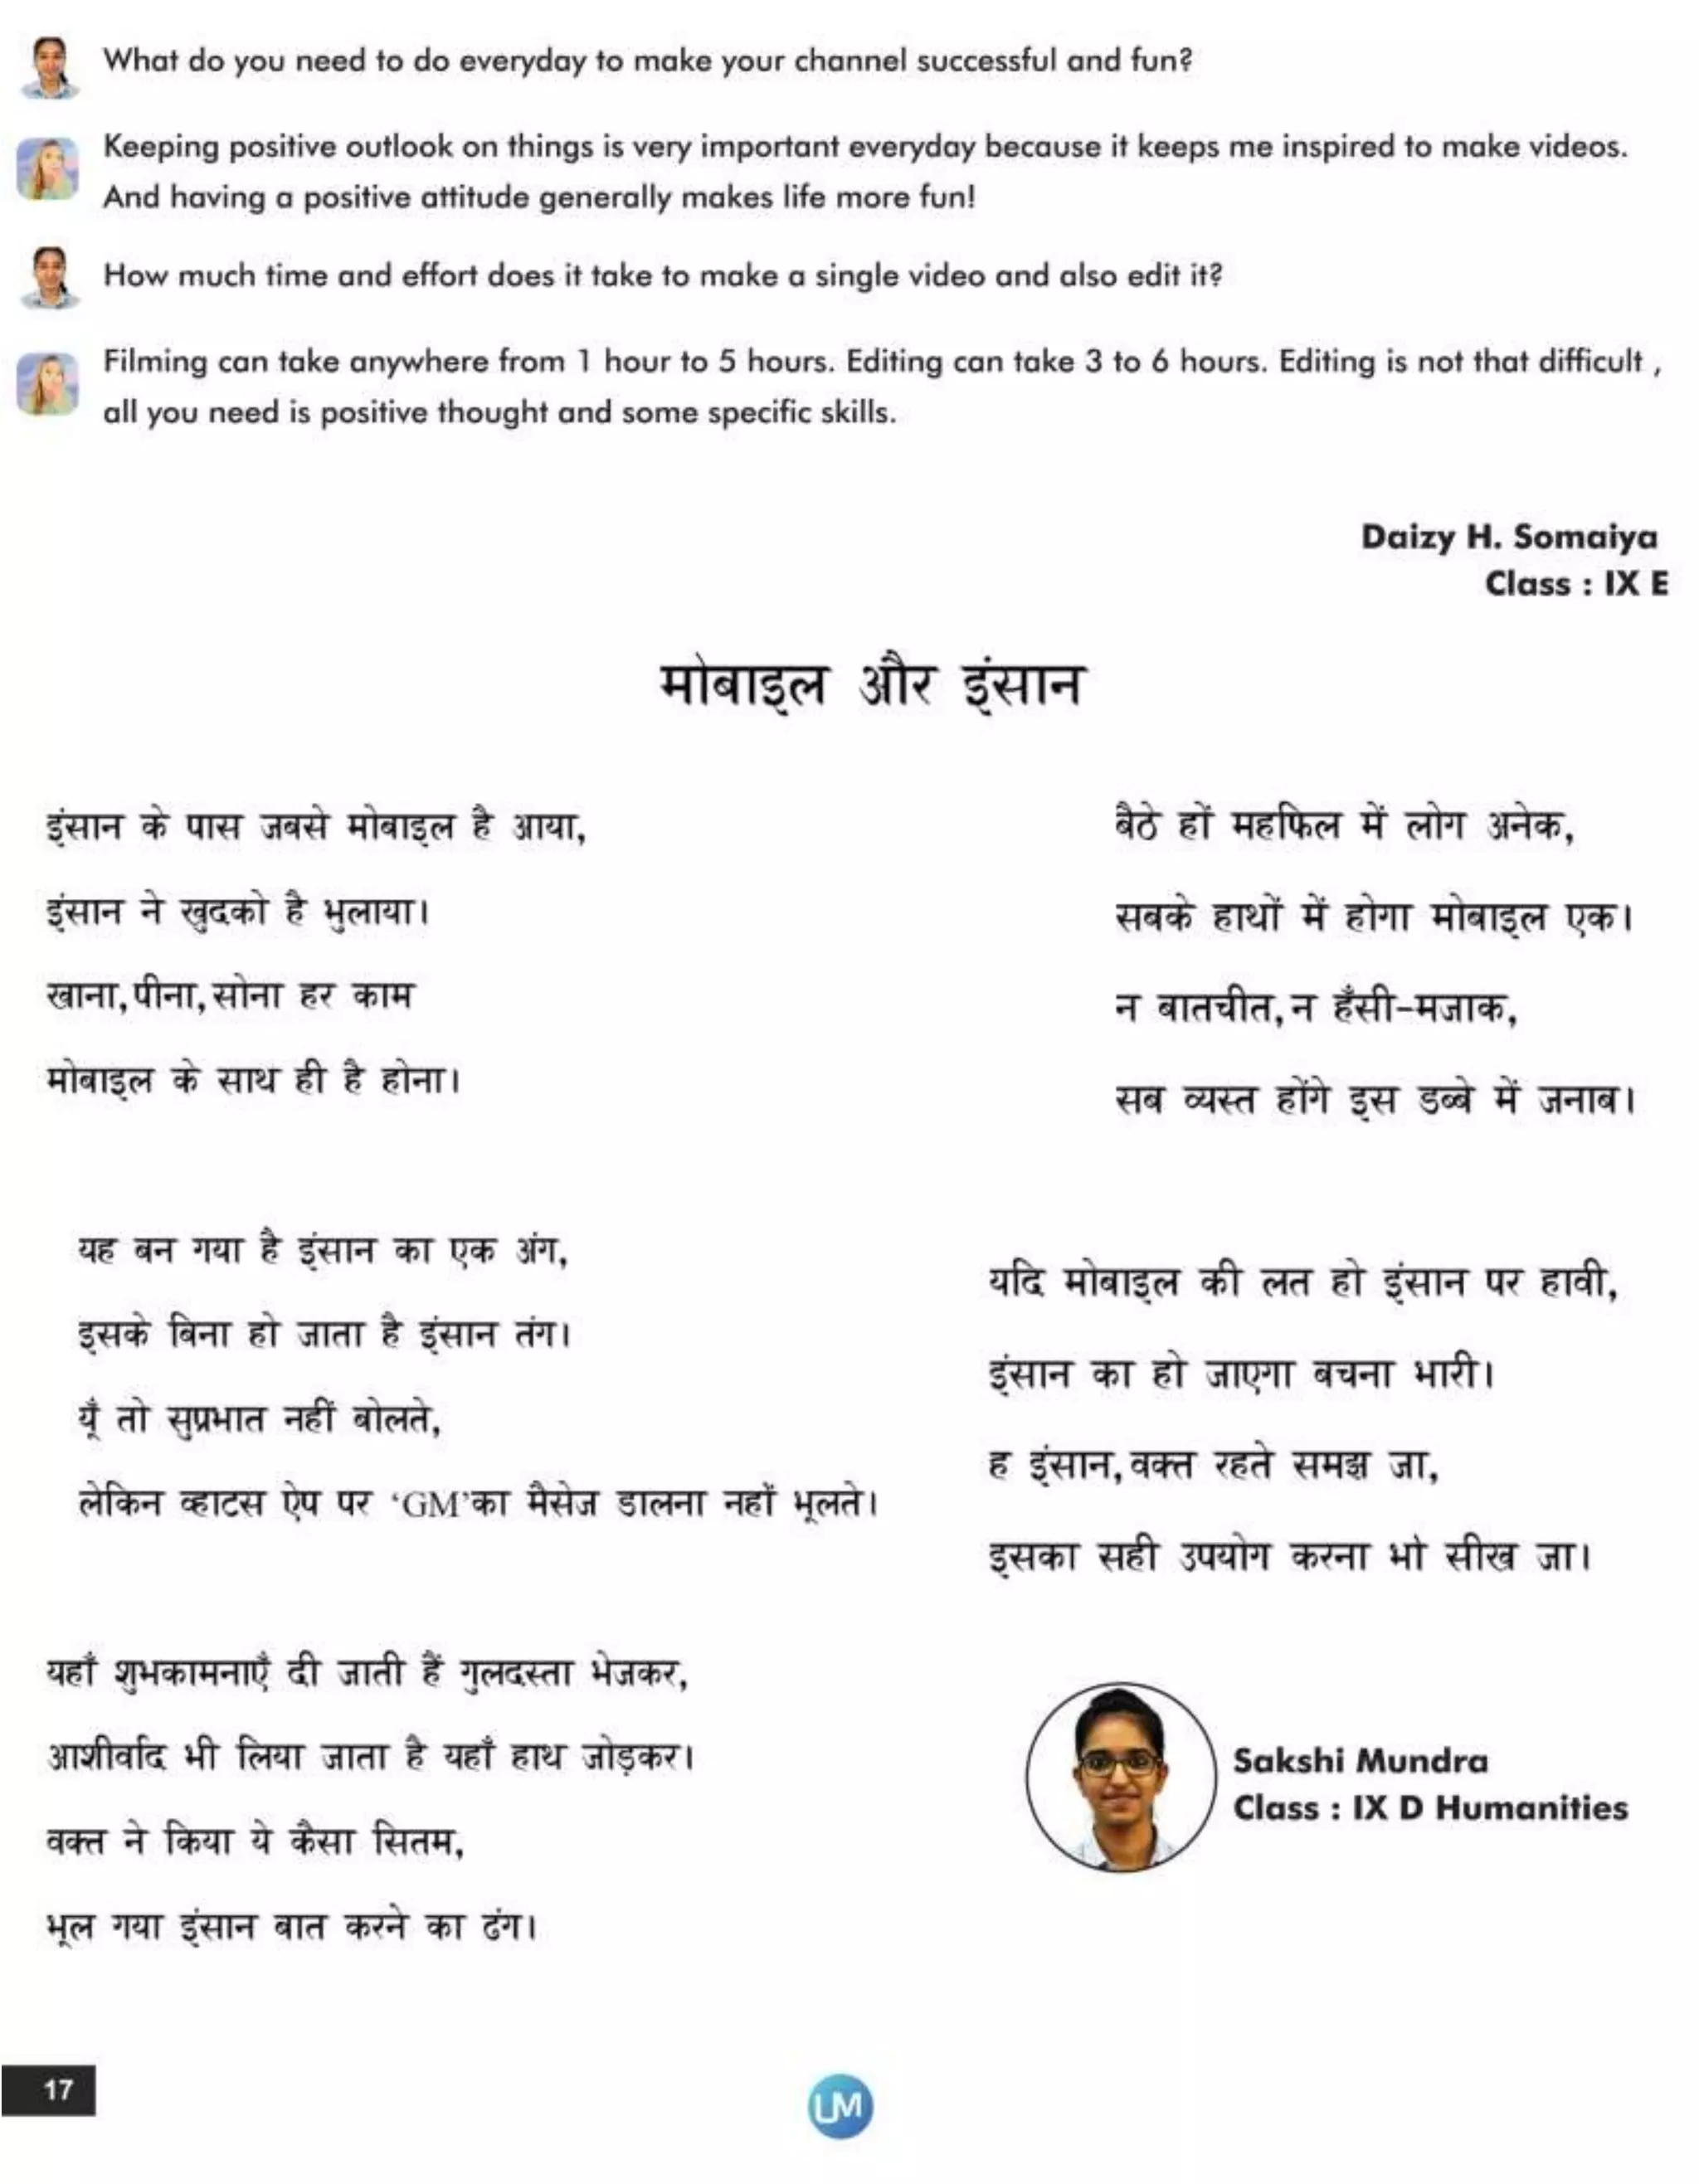 What do you need to do everyday to make your channel successful and fun?
Keeping positive outlook on things is very important everyday because it keeps me inspired to make videos.
And having a positive attitude generally makes life more fun!
How much time and effort does it take to make a single video and also edit it?
Filming can take anywhere from 1 hour to 5 hours. Editing can take 3 to 6 hours. Editing is not that difficult ,
all you need is positive thought and some specific skills.
Daizy H. Somaiya
Class : IX E
मोबाइल और इंसान
इंसान के पास जबसे मोबाइल है आया,
इंसान ने खुदको है भुलाया।
खाना, पीना, सोना हर काम
मोबाइल के साथ ही है होना।
यह बन गया है इंसान का एक अंग,
इसके बिना हो जाता है इंसान तंग।
यूँ तो सुप्रभात नहीं बोलते,
लेकिन व्हाटस ऐप पर ‘GM’का मैसेज डालना नहीं भूलते।
यहाँ शुभकामनाएँ दी जाती हैं गुलदस्ता भेजकर,
आशीर्वाद भी लिया जाता है यहाँ हाथ जोड़कर।
वक्त ने किया ये कैसा सितम,
भूल गया इंसान बात करने का ढंग।
बैठे हों महफिल में लोग अनेक,
सबके हाथों में होगा मोबाइल एक।
न बातचीत, न हँसी-मजाक,
सब व्यस्त होंगे इस डब्बे में जनाब।
यदि मोबाइल की लत हो इंसान पर हावी,
इंसान का हो जाएगा बचना भारी।
ह इंसान, वक्त रहते समझ जा,
इसका सही उपयोग करना भी सीख जा।
Sakshi Mundra
Class : IX D Humanities
17
UM